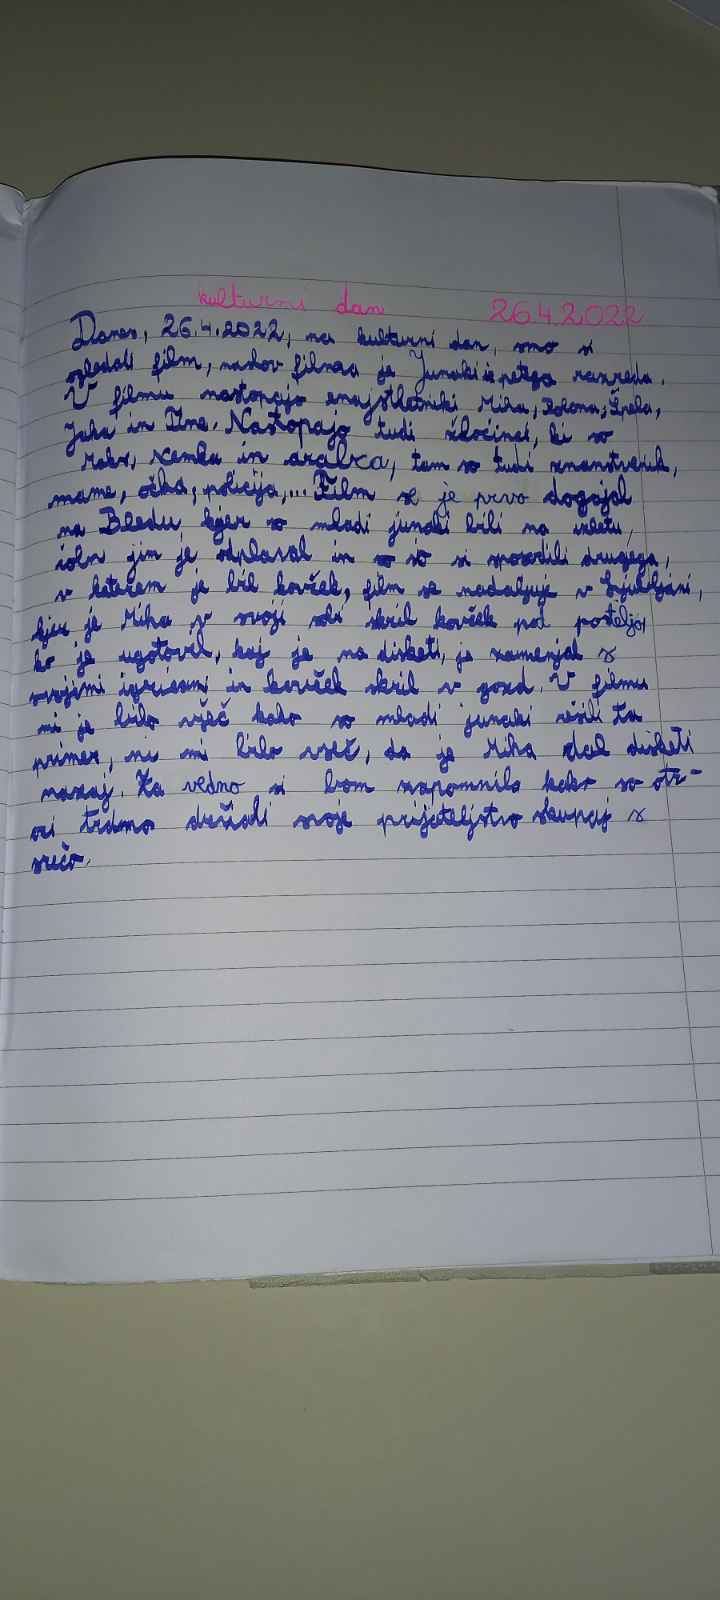 kulturni dan 26.4.2022
Danes, 26.4.2022, na kulturni dan, smo si
ogledali film, naslov filma je Junaki iz petega razreda.
V filmu nastopajo enajstletniki Miha, Polona, Špela,
Jaka in Tine. Nastopajo tudi zločinci, ki so
in araba, tam so tudi znanstvenik,
mame, očka, policija,... Film se je prvo dogajal
na Bledu kjer so mladi junaki bili na izletu,
čoln jim je odplaval in so si sposodili drugega,
v katerem je bil kovček, film se nadaljuje v Ljubljani,
kjer je Miha v svoji sobi skril kovček pod posteljo,
ko je ugotovil, kaj je na disketi, je zamenjal z
svojimi igricami in kovček skril v gozd. V filmu
mi je bilo všeč kako so mladi junaki rešili ta
primer, ni mi bilo všeč, da je Miha dal disketi
nazaj. Za vedno si bom zapomnila kako so ot-
oci trdno držali svoje prijateljstvo skupaj z
srečo.